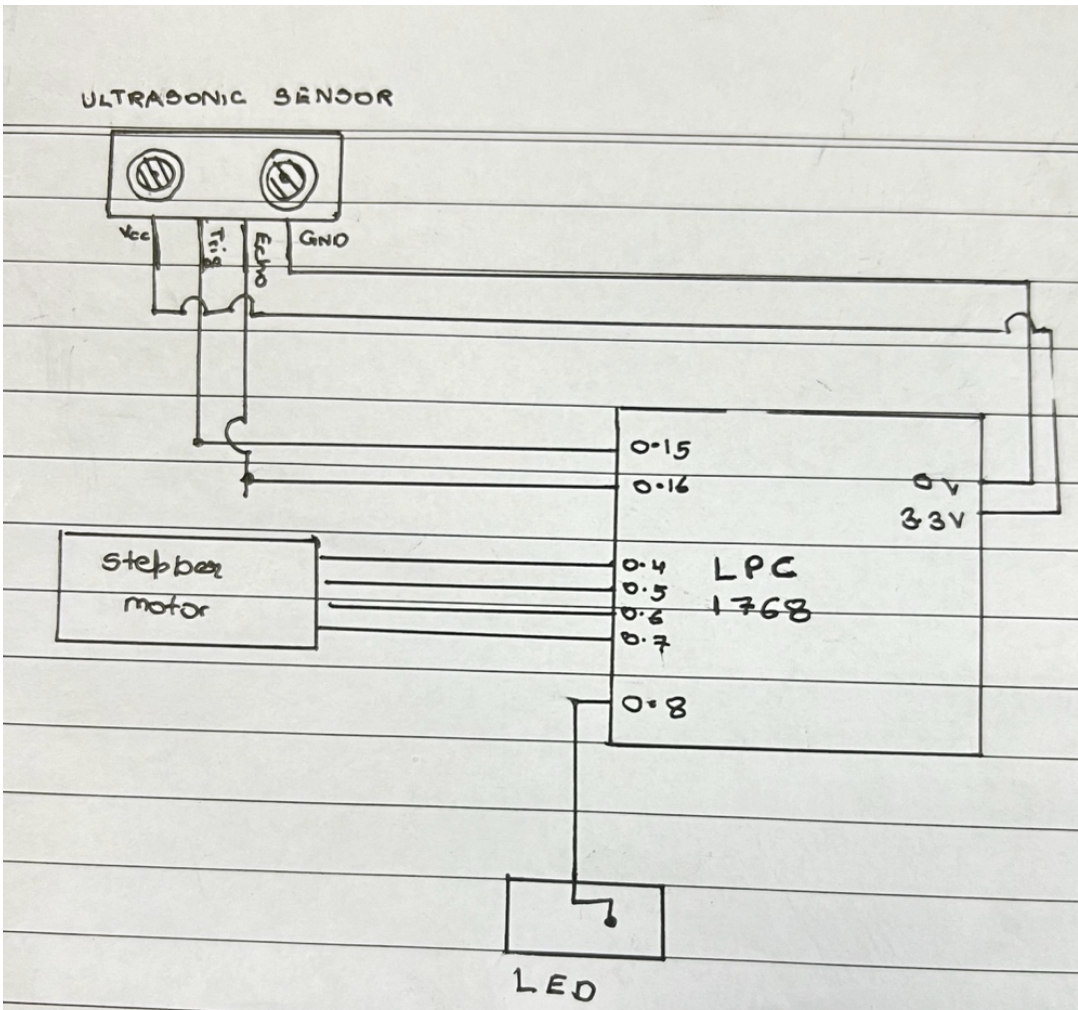 ULTRASONIC SENSOR
Vcc
Trig
Echo
GND
0.15
0.16
0V
3.3V
stepper
motor
0.4
0.5
0.6
0.7
LPC
1768
0.8
LED